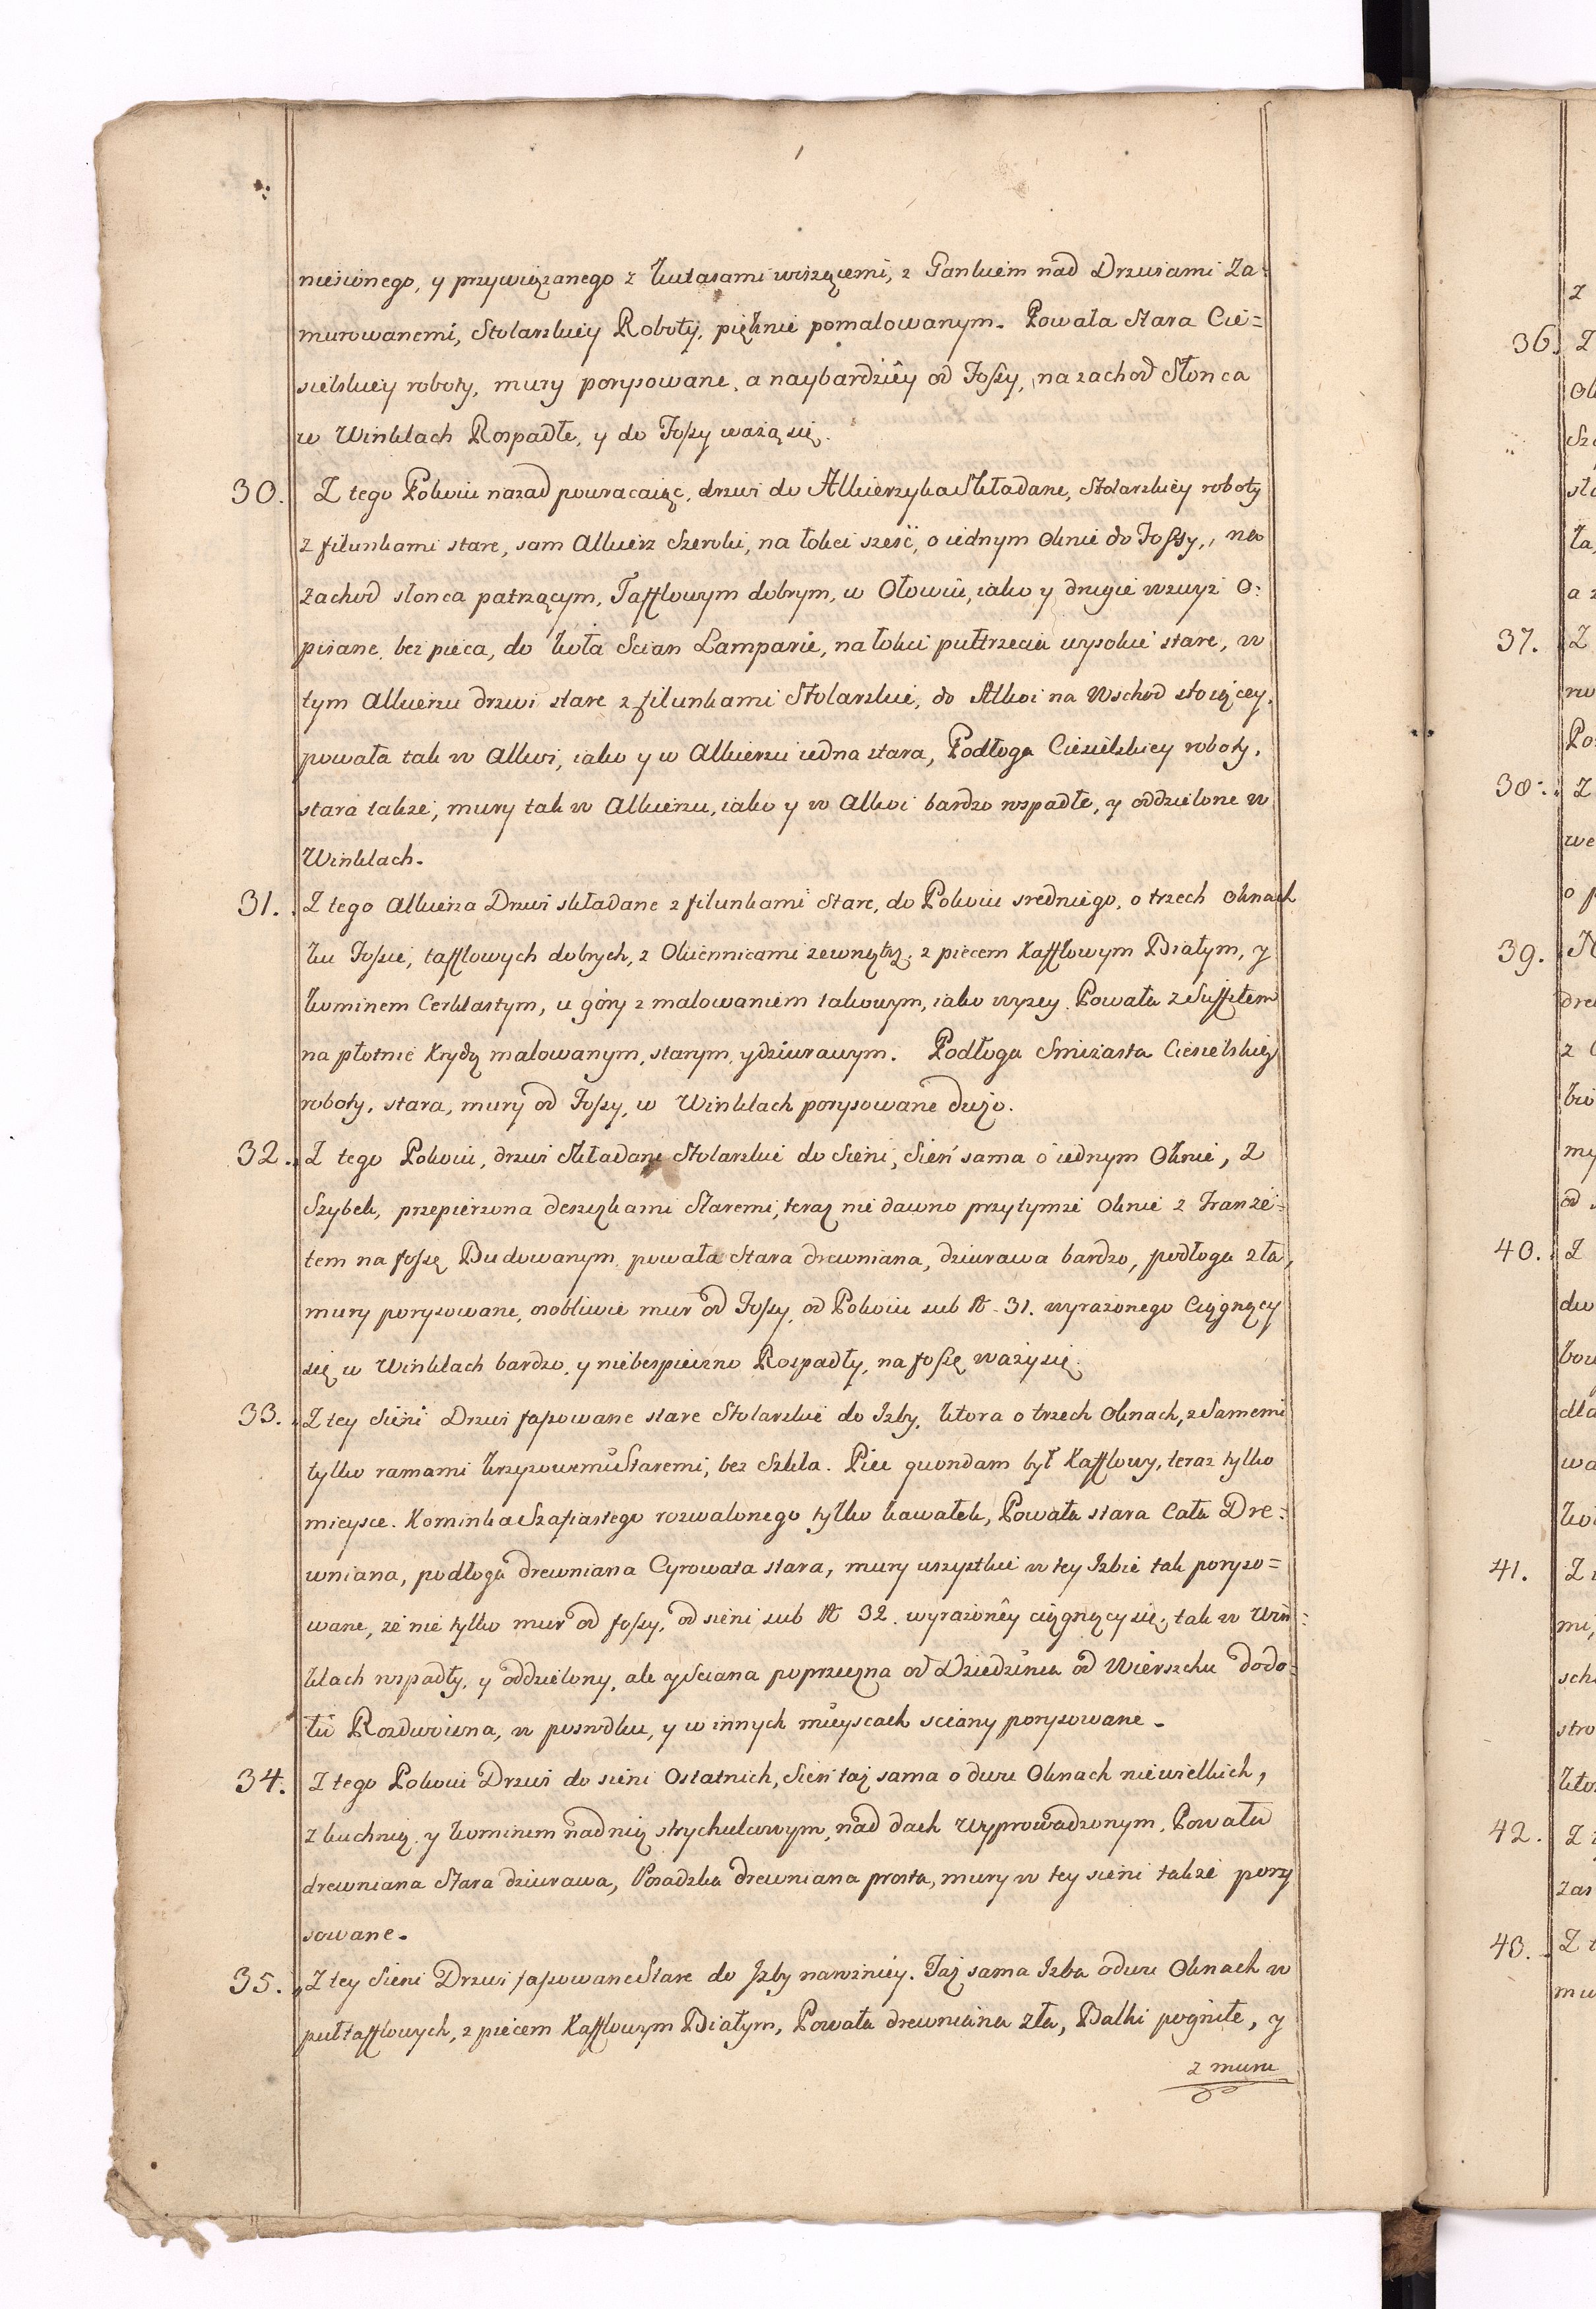 niesionego, y przywiązanego z kutasami wiszącemi, z Gankiem nad Drzwiami Za=
murowanemi, Stolarskiey Roboty, pięknie pomalowanym. Powała Stara Cie=
sielskiey roboty, mury porysowane, a naybardziey od Fossy, na zachod Słonca
w Winklach Rospadłe, y do Fossy ważą się.
30. Z tego Pokoiu nazad powracaiąc, drzwi do Alkierzyka Składane, Stolarskiey roboty
z filunkami stare, sam Alkierz Szeroki, na łokci sześć, o iednym Oknie do Fossy, na
zachod słonca patrzącym, Tafflowym dobrym, w Ołowiu, iako y drugie wzwyż O=
pisane, bez pieca, do koła Scian Lamparie, na łokci pułtrzecia wysokie stare, w
tym Alkierzu drzwi stare z filunkami Stolarskie, do Alkoi na Wschod stoiącey,
powała tak w Alkoi, iako y w Alkierzu iedna stara, Podłoga Ciesielskiey roboty,
stara także, mury tak w Alkierzu, iako y w Alkoi bardzo rospadłe, y oddzielone w
Winklach.
31. Z tego Alkierza Drzwi składane z filunkami Stare, do Pokoiu sredniego, o trzech Oknach
ku Fossie, tafflowych dobrych, z Okiennicami zewnątrz, z piecem Kafflowym Białym, y
kominem Cerklastym, u góry z malowaniem takowym, iako wyzey. Powała z Suffitem
na płotnie Krydą malowanym, starym, y dziurawym. Podłoga Smiżasta Ciesielskiey
roboty, stara, mury od Fossy, w Winklach porysowane dużo.
32. Z tego Pokoiu, drzwi Składane Stolarskie do Sieni, Sień sama o iednym Oknie, z
Szybek, przepierzona deszczkami Staremi, teraz nie dawno przy tymże Oknie z Tranze=
tem na fossę Budowanym, powała Stara drewniana, dziurawa bardzo, podłoga zła,
mury porysowane, osobliwie mur od Fossy, od Pokoiu sub N. 31. wyrażonego Ciągnący
się, w Winklach bardzo, y niebespieczno Rospadły, na fossę waży się.
33. Z tey Sieni Drzwi fasowane stare Stolarskie do Izby, ktora o trzech Oknach, z Samemi
tylko ramami krzyzowemi Staremi, bez Szkła. Piec quondam był Kafflowy, teraz tylko
mieysce. Kominka Szafiastego rozwalonego tylko kawałek, Powała stara Cała Dre=
wniana, podłoga drewniana Cyrowata stara, mury wszystkie w tey Izbie tak poryso=
wane, że nie tylko mur od fossy, od sieni sub N 32. wyrażoney ciągnący się, tak w Win=
klach rospadły, y oddzielony, ale y Sciana poprzeczna od Dziedzinca od Wierszchu dodo=
łu Rozdwoiona, w posrodku, y w innych mieyscach sciany porysowane.
34. Z tego Pokoiu Drzwi do sieni Ostatnich, Sień taż sama o dwu Oknach niewielkich,
z kuchnią, y kominem nad nią strychulcowym, nad dach Wyprowadzonym, Powała
drewniana Stara dziurawa, Posadzka drewniana prosta, mury w tey sieni także pory
sowane.
35. Z tey Sieni Drzwi fasowane Stare do Izby narozniey. Taż sama Izba o dwu Oknach w
puł tafflowych, z piecem Kafflowym Białym, Powała drewniana zła, Balki pogniłe, y
z muru
36. Z
37. Z
38. Z
39.
40. Z
41. Z
42. Z
43. Z